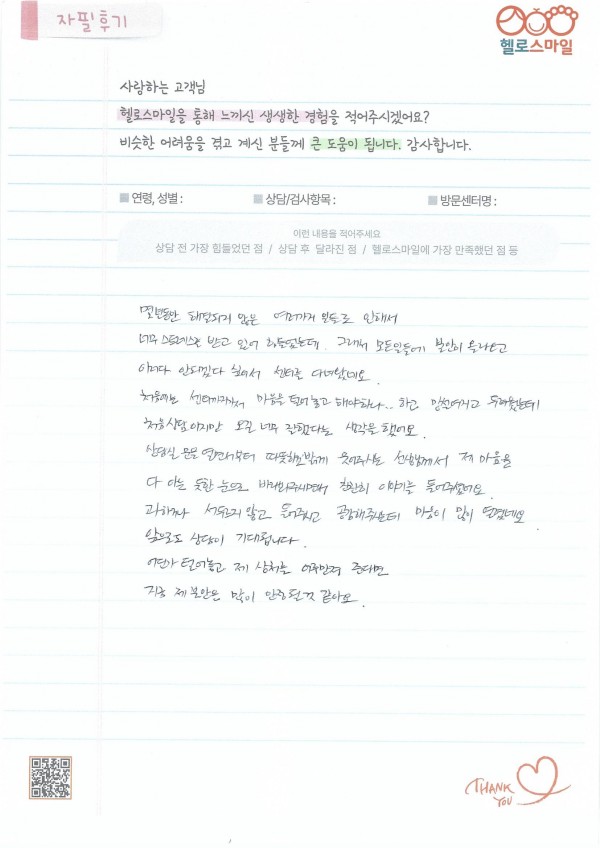 자필후기
헬로스마일
사랑하는 고객님
헬로스마일을 통해 느끼신 생생한 경험을 적어주시겠어요?
비슷한 어려움을 겪고 계신 분들께 큰 도움이 됩니다. 감사합니다.
연령, 성별 : 상담/검사항목 : 방문센터명 :
이런 내용을 적어주세요
상담 전 가장 힘들었던 점 / 상담 후 달라진 점 / 헬로스마일에 가장 만족했던 점 등
몇년동안 해결되지 않은 여러가지 일들로 인해서
너무 스트레스를 받고 있어 힘들었는데, 그래서 모든일들에 불안이 올라오고
이러다 안되겠다 싶어서 센터를 다녀왔네요.
처음에는 센터까지가서 마음을 털어놓고 해야하나.. 하고 망설여지고 두려웠는데
처음상담이지만 오길 너무 잘했다는 생각을 했어요.
상담실 문을 열면서부터 따뜻하고밝게 웃어주시는 선생님께서 제 마음을
다 아는 듯한 눈으로 바라봐주시면서 천천히 이야기를 들어주셨네요.
과하거나 서두르지 않고 들어주시고 공감해주셨는데 마음이 많이 열렸네요.
앞으로도 상담이 기대됩니다.
털어놓고 제 상처를 어루만져 준다면
지금 제 불안은 많이 안정될 것 같아요.
THANK YOU